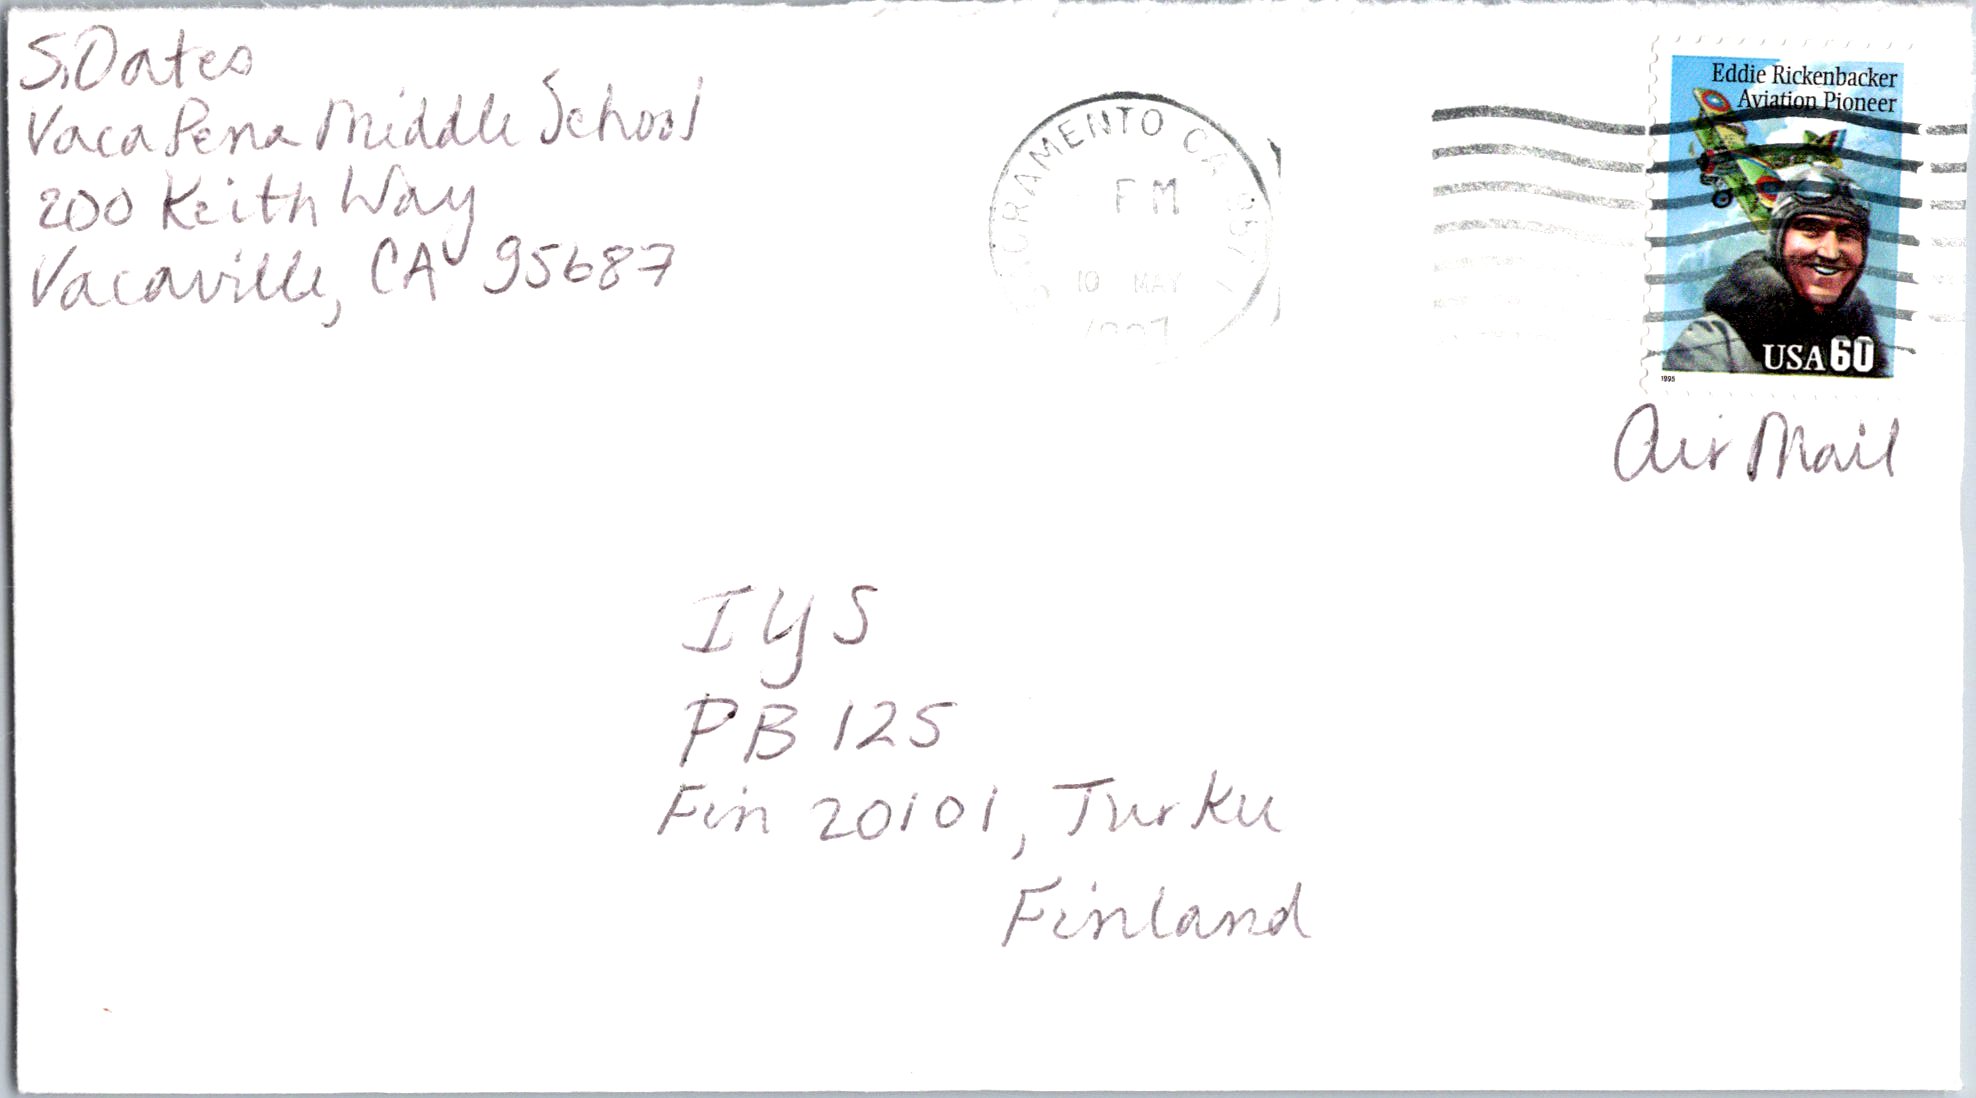 S. Oates
Vaca Pena Middle School
200 Keith Way
Vacaville, CA 95687
SACRAMENTO CA 957
PM
10 MAY
1997
Eddie Rickenbacker
Aviation Pioneer
USA 60
1995
Air Mail
IYS
PB 125
Fin 20101, Turku
Finland